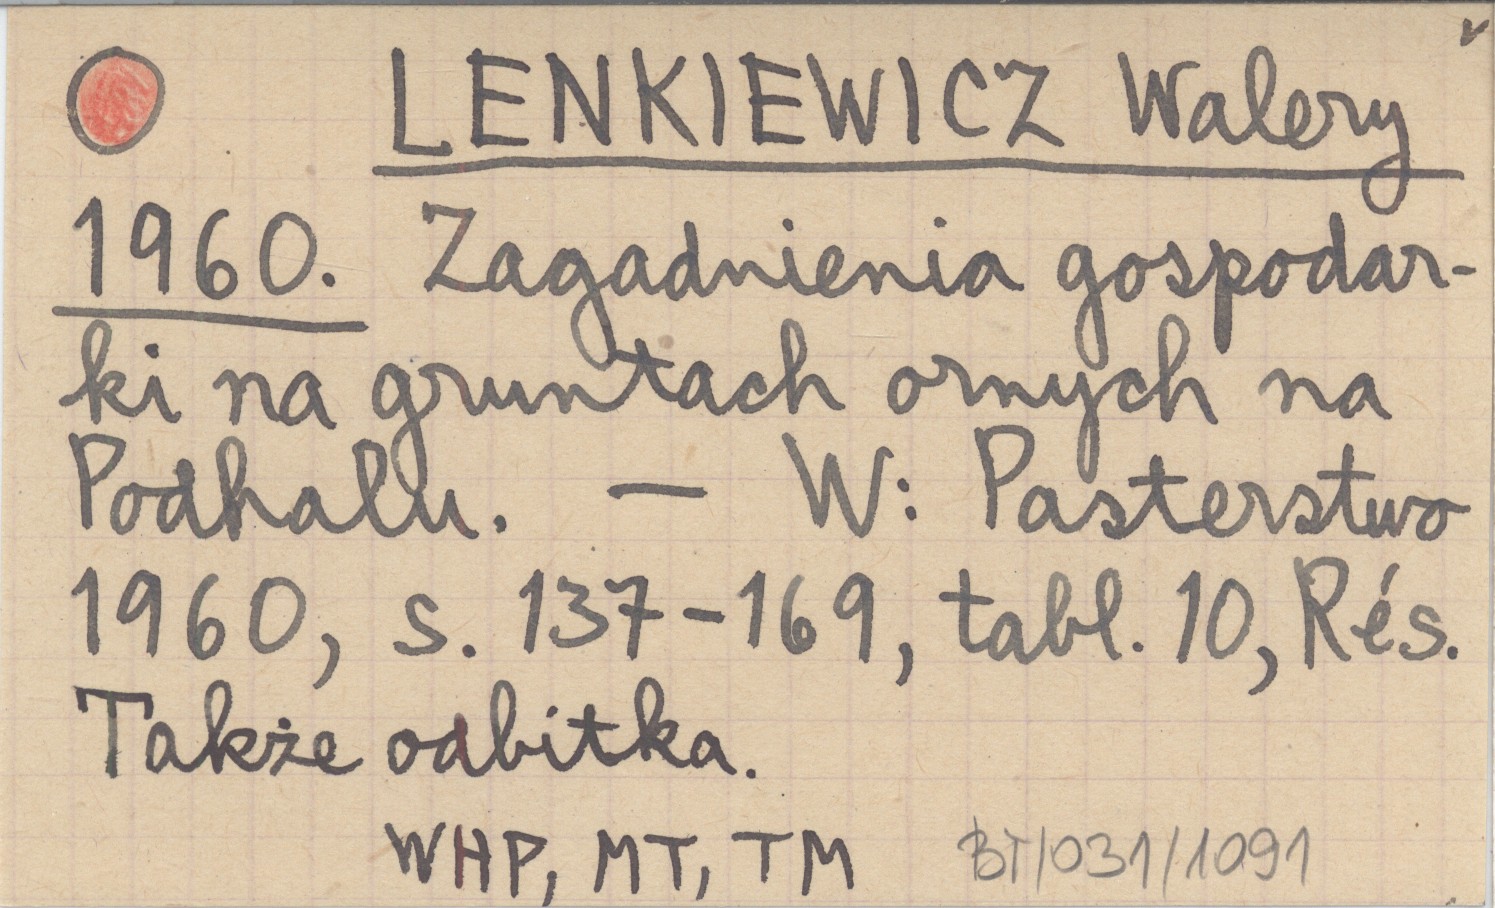 LENKIEWICZ Walery
1960. Zagadnienia gospodar-
ki na gruntach ornych na
Podhalu. — W: Pasterstwo
1960, s. 137-169, tabl. 10, Rés.
Także odbitka.
WHP, MT, TM BT/031/1091